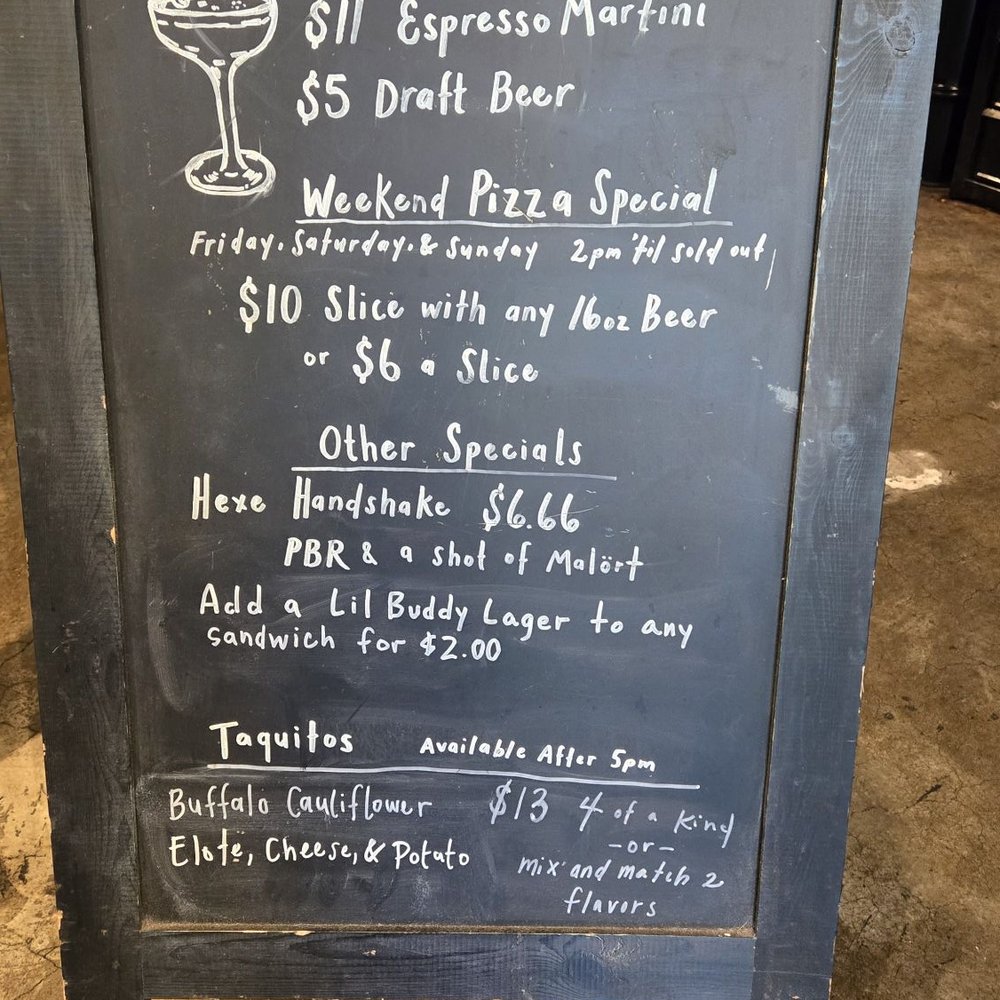 $11 Espresso Martini
$5 Draft Beer
Weekend Pizza Special
Friday, Saturday, & Sunday 2pm 'til sold out
$10 Slice with any 16oz Beer
or $6 a Slice
Other Specials
Hexe Handshake $6.66
PBR & a shot of Malört
Add a Lil Buddy Lager to any
sandwich for $2.00
Taquitos Available After 5pm
Buffalo Cauliflower $13 4 of a kind
-or-
Elote, Cheese, & Potato mix and match 2
flavors